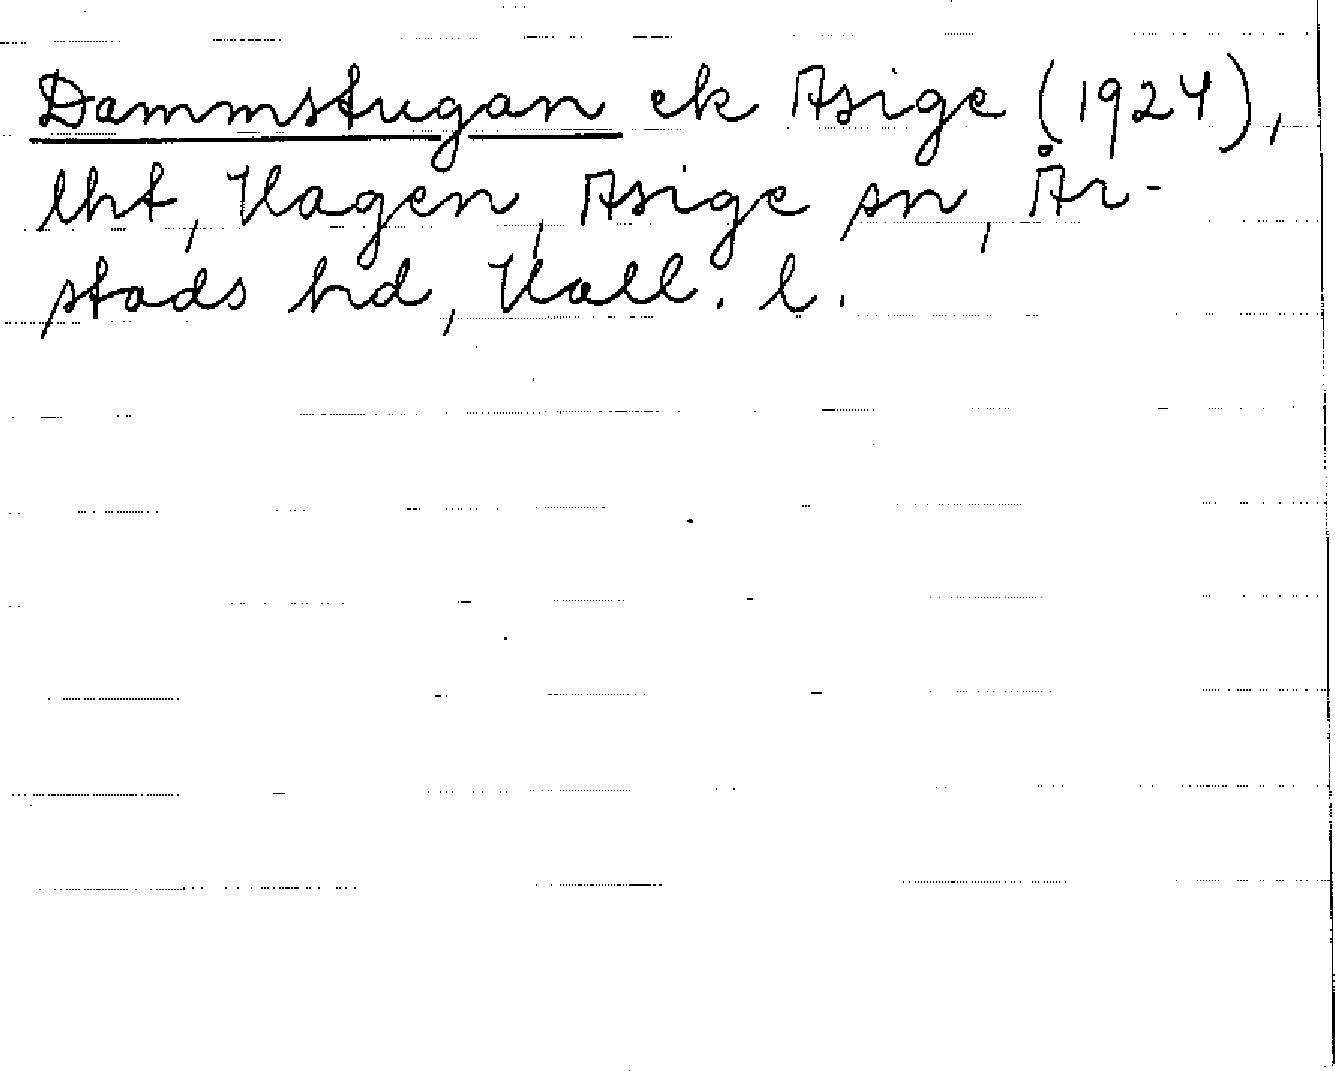 Dammstugan ek Asige (1924),
lht, Hagen, Asige sn, År-
stads hd, Hall. l.